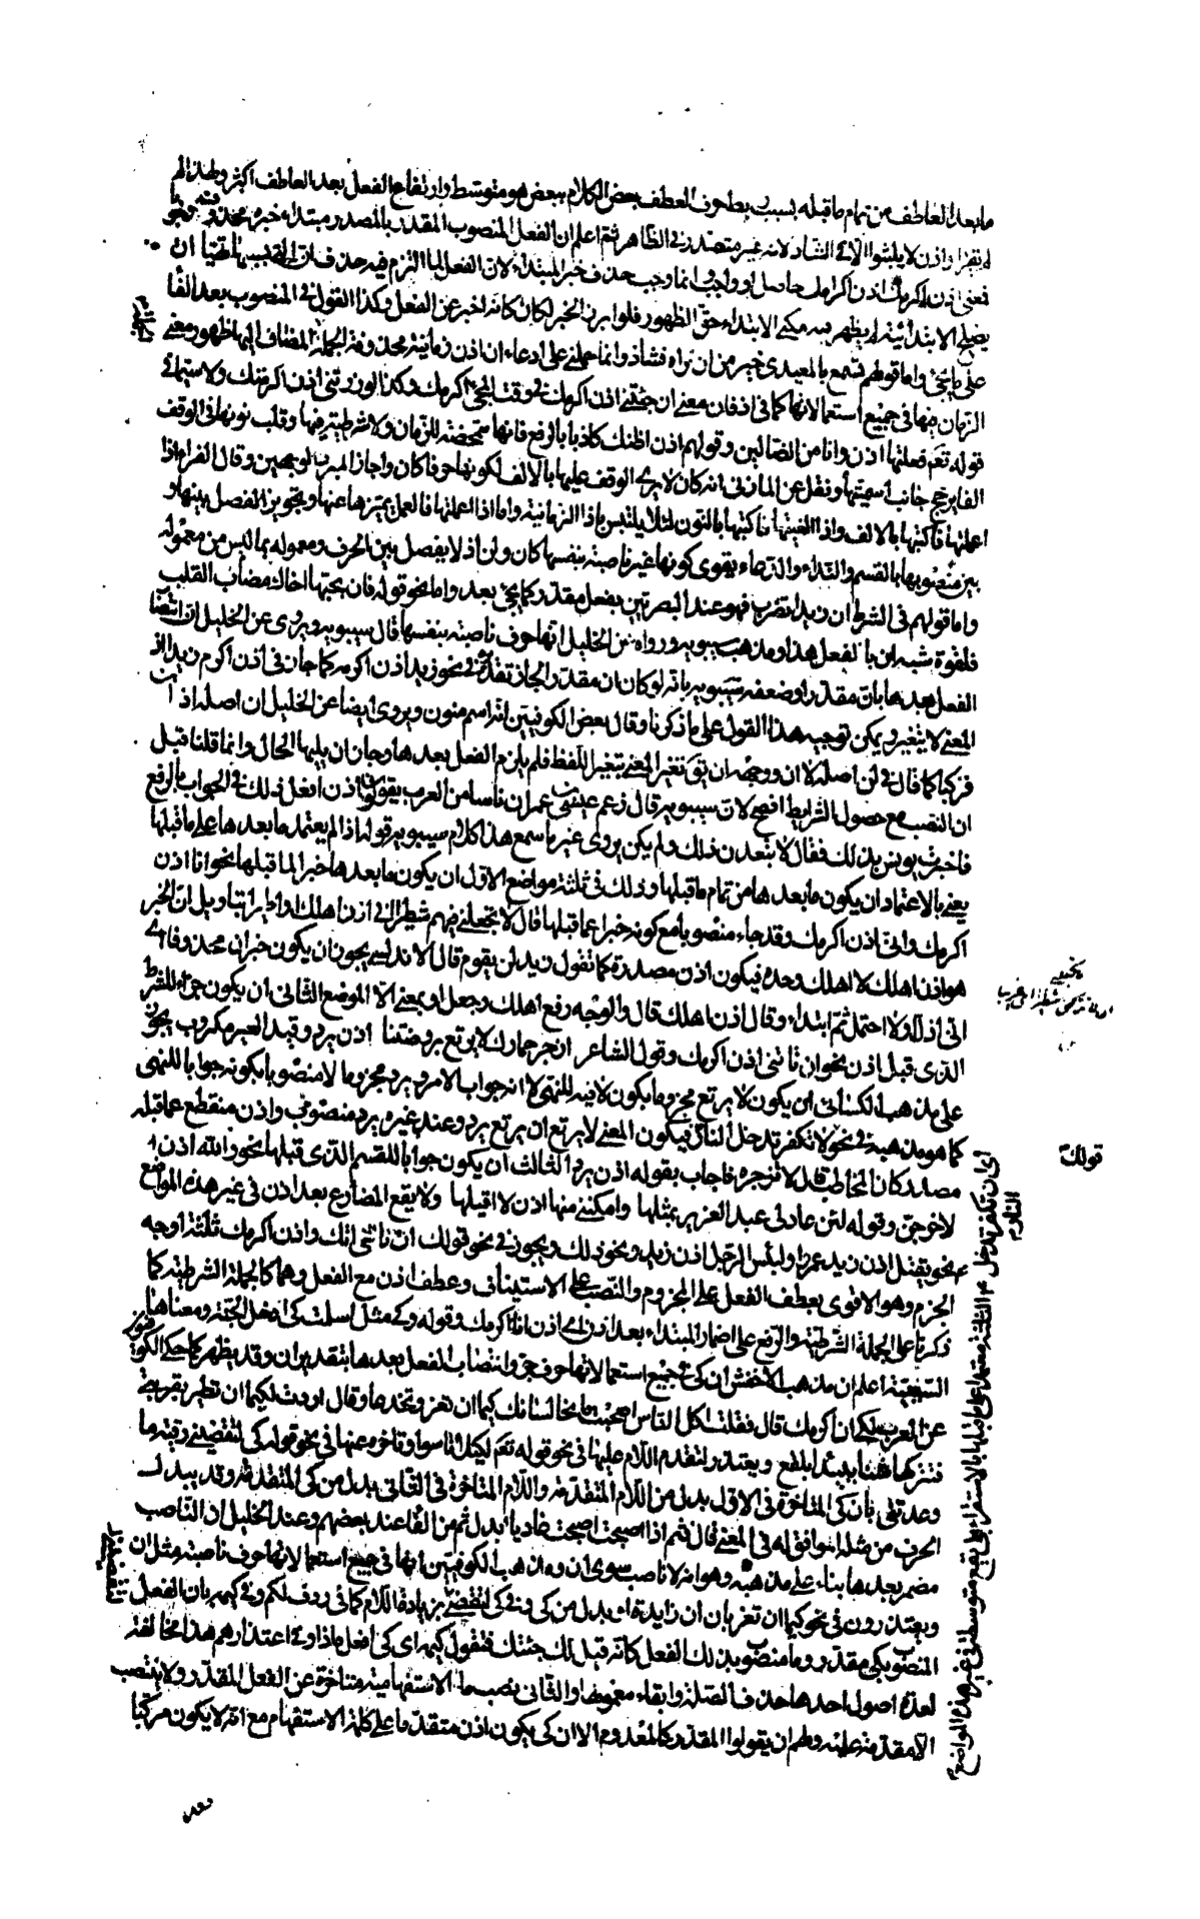 ما بعد العاطف من تمام ما قبله بسبب ربط حروف العطف بعض الكلام ببعض هو متوسط وارتفاع الفعل بعد العاطف اكثر ولهذا لم
يقرا واذن لا يلبثوا الا في الشاذ لانه غير متصدر في الظاهر ثم اعلم ان الفعل المنصوب المقدر بالمصدر مبتداء خبره محذوف وجوبا
فمعنى اذن اكرمك اذن اكرامك حاصل او واجب وانما وجب حذف خبر المبتداء لان الفعل لما التزم فيه حذف ان التي بسببها تهيا ان
يصلح للابتدائية لم يظهر فيه معنى الابتداء حق الظهور فلو ابرز الخبر لكان كانه اخبر عن الفعل وكذا القول في المنصوب بعد الفا
على ما يجئ واما قولهم تسمع بالمعيدي خير من ان تراه فشاذ وانما حملني على ادعاء ان اذن زمانية محذوفة الجملة المضاف اليها ظهور معنى
الزمان فيها في جميع استعمالاتها كما في اذ فان معنى ان جئتني اذن اكرمك في وقت المجئ اكرمك وكذا لو زرتني اذن اكرمتك ولا سيما في
قوله تعم فعلتها اذن وانا من الضالين وقولهم اذن اظنك كاذبا بالرفع فانها متمحضة للزمان ولا شرطية فيها وقلب نونها في الوقف
الفا يرجح جانب اسميتها ونقل عن المازني انه كان لا يرى الوقف عليها بالالف لكونها حرفا كان واجاز المبرد الوجهين وقال الفراء اذا
اعملتها فاكتبها بالالف واذا الغيتها فاكتبها بالنون لئلا يلتبس باذا الزمانية واما اذا اعملتها فالعمل يميزها عنها وتجويز الفصل بينها و
بين منصوبها بالقسم والنداء والدعاء يقوى كونها غير ناصبة بنفسها كان ولن اذ لا يفصل بين الحرف ومعموله بما ليس من معموله
واما قولهم في الشرط ان زيدا تضرب فهو عند البصريين بفعل مقدر كما يجئ بعد واما نحو قوله فان بحبها اخاك مصاب القلب
فلقوة شبه ان بالفعل هذا ومذهب سيبويه ورواه عن الخليل انها حرف ناصبة بنفسها قال سيبويه ويروى عن الخليل ان انتصاب
الفعل بعدها بان مقدرا وضعفه سيبويه بانه لو كان ان مقدرا لجاز تقديره في نحو زيد اذن اكرمه كما جاز في اذن اكرم زيدا اذ
المعنى لا يتغير ويمكن توجيه هذا القول على ما ذكرنا وقال بعض الكوفيين انه اسم منون ويروى ايضا عن الخليل ان اصله اذ ان
فركبا كما قال في لن اصله لا ان ووجهه ان يق تغير المعنى بتغير اللفظ فلم يلزم الفعل بعدها وجاز ان يليها الحال وانما قلنا قبل
ان النصب مع حصول الشرايط افصح لان سيبويه قال زعم عيسى بن عمر ان ناسا من العرب يقولون اذن افعل ذلك في الجواب بالرفع
فاخبرت يونس بذلك فقال لا تبعدن ذلك ولم يكن يروى غير ما سمع هذا كلام سيبويه قوله اذا لم يعتمد ما بعدها على ما قبلها
يعني بالاعتماد ان يكون ما بعدها من تمام ما قبلها وذلك في ثلثة مواضع الاول ان يكون ما بعدها خبرا لما قبلها نحو انا اذن
اكرمك واني اذن اكرمك وقد جاء منصوبا مع كونه خبرا عما قبلها قال لا تجعلني فيهم شطيرا اني اذن اهلك او اطيرا بتاويل ان الخبر
هو اذن اهلك لا اهلك وحده فيكون اذن مصدرة كما تقول زيد لن يقوم قال الاندلسي يجوز ان يكون خبر ان محذوفا اي
اني اذل او لا احتمل ثم ابتداء وقال اذن اهلك قال والوجه رفع اهلك وجعل او بمعنى الا الموضع الثاني ان يكون جزاء للشرط
الذي قبل اذن نحو ان تاتني اذن اكرمك وقول الشاعر ازجر حمارك لا يرتع بروضتنا اذن يرد وقيد العير مكروب يجوز
على مذهب الكسائي ان يكون لا يرتع مجزوما بكون لا فيه للنهي لا انه جواب الامر ويرد مجزوما لا منصوبا بكونه جوابا للنهي
كما هو مذهبه في نحو لا تكفر تدخل النار فيكون المعنى لا يرتع ان يرتع يرد وعند غيره يرد منصوب واذن منقطع عما قبله
مصدر كان المخاطب قال لا نزجره فاجاب بقوله اذن يرد الثالث ان يكون جوابا للقسم الذي قبلها نحو والله اذن
لاخرجن وقوله لئن عاد لي عبد العزيز بمثلها وامكنني منها اذن لا اقيلها ولا يقع المضارع بعد اذن في غير هذه المواضع
نحو يقتل اذن زيد عمرا ولبئس الرجل اذن زيد ونحو ذلك ويجوز في نحو قولك ان تاتني اتك واذن اكرمك ثلثة اوجه
الجزم وهو الاقوى بعطف الفعل على المجزوم والنصب على الاستيناف وعطف اذن مع الفعل وهما كالجملة الشرطية كما
ذكرنا على الجملة الشرطية والرفع على اضمار المبتداء بعد اذن اي اذن انا اكرمك وقوله وكي مثل اسلمت كي ادخل الجنة ومعناها
السببية اعلم ان مذهب الاخفش ان كي في جميع استعمالاتها حرف جر وانتصاب الفعل بعدها بتقدير ان وقد يظهر كما حكى الكوفيون
عن العرب لكي ان اكرمك قال فقلت اكل الناس اصبحت مانحا لسانك كيما ان تغر وتخدعا وقال اردت لكيما ان تطير بقربتي
فتتركها شنا ببيداء بلقع ويعتذر لتقدم اللام عليها في نحو قوله تعم لكيلا تاسوا وتاخره عنها في نحو قوله كي لتقضيني رقية ما
وعدتني بان كي المتاخرة في الاول بدل من اللام المتقدمة واللام المتاخرة في الثاني بدل من كي المتقدمة وقد يبدل
الحرف من مثله الموافق له في المعنى قال فثم اذا اصبحت اصبحت غاديا بدل ثم من الفا عند بعضهم وعند الخليل ان الناصب
مضمر بعدها بناء على مذهبه وهو انه لا ناصب سوى ان ومذهب الكوفيين انها في جميع استعمالاتها حرف ناصبة مثل ان
ويعتذرون في نحو كيما ان تغر بان ان زايدة او بدل من كي وفي كي لتقضيني بزيادة اللام كما في ردف لكم وفي كيمه بان الفعل
المنصوب بكي مقدر وما منصوب بذلك الفعل كانه قيل لك جئتك فتقول كيمه اي كي افعل ماذا وفي اعتذارهم هذا مخالفة
لعدة اصول احدها حذف الصلة وابقاء معمولها والثاني نصب ما الاستفهامية متاخرة عن الفعل المقدر ولا ينتصب
الا مقدمة عليه ولهم ان يقولوا المقدر كالمعدوم الا ان كي يكون اذن متقدما على كلمة الاستفهام مع انه لا يكون مركبا
قولك
اي ان تكفر تدخل النار